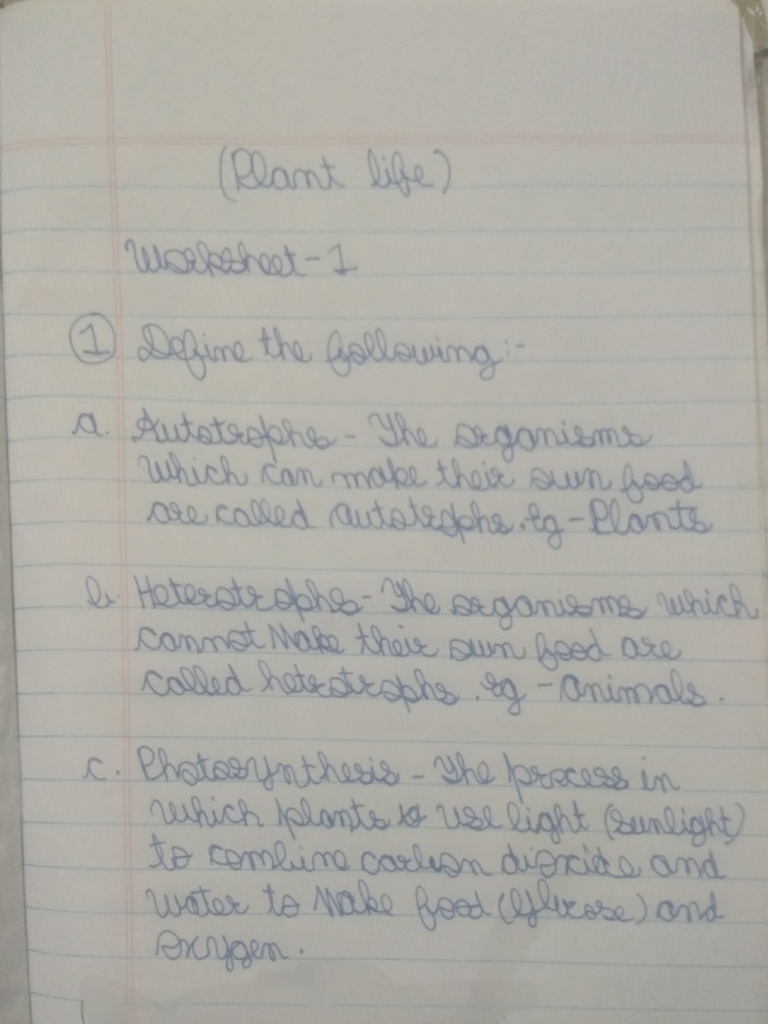 (Plant life)
Worksheet-1
1 Define the following:-
a. Autotrophs - The organisms
which can make their own food
are called autotrophs. eg - Plants
b. Heterotrophs - The organisms which
cannot Make their own food are
called hetrotrophs. eg - animals.
c. Photosynthesis - The process in
which plants use light (sunlight)
to combine carbon dioxide and
water to Make food (Glucose) and
oxygen.